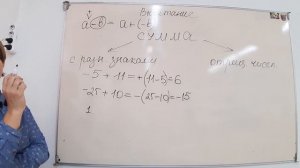 Вычитание
a-b = a+(-b
сумма
с разн знаками
отриц чисел
-5 + 11 = +(11-5)=6
-25 + 10 = -(25-10)=-15
1